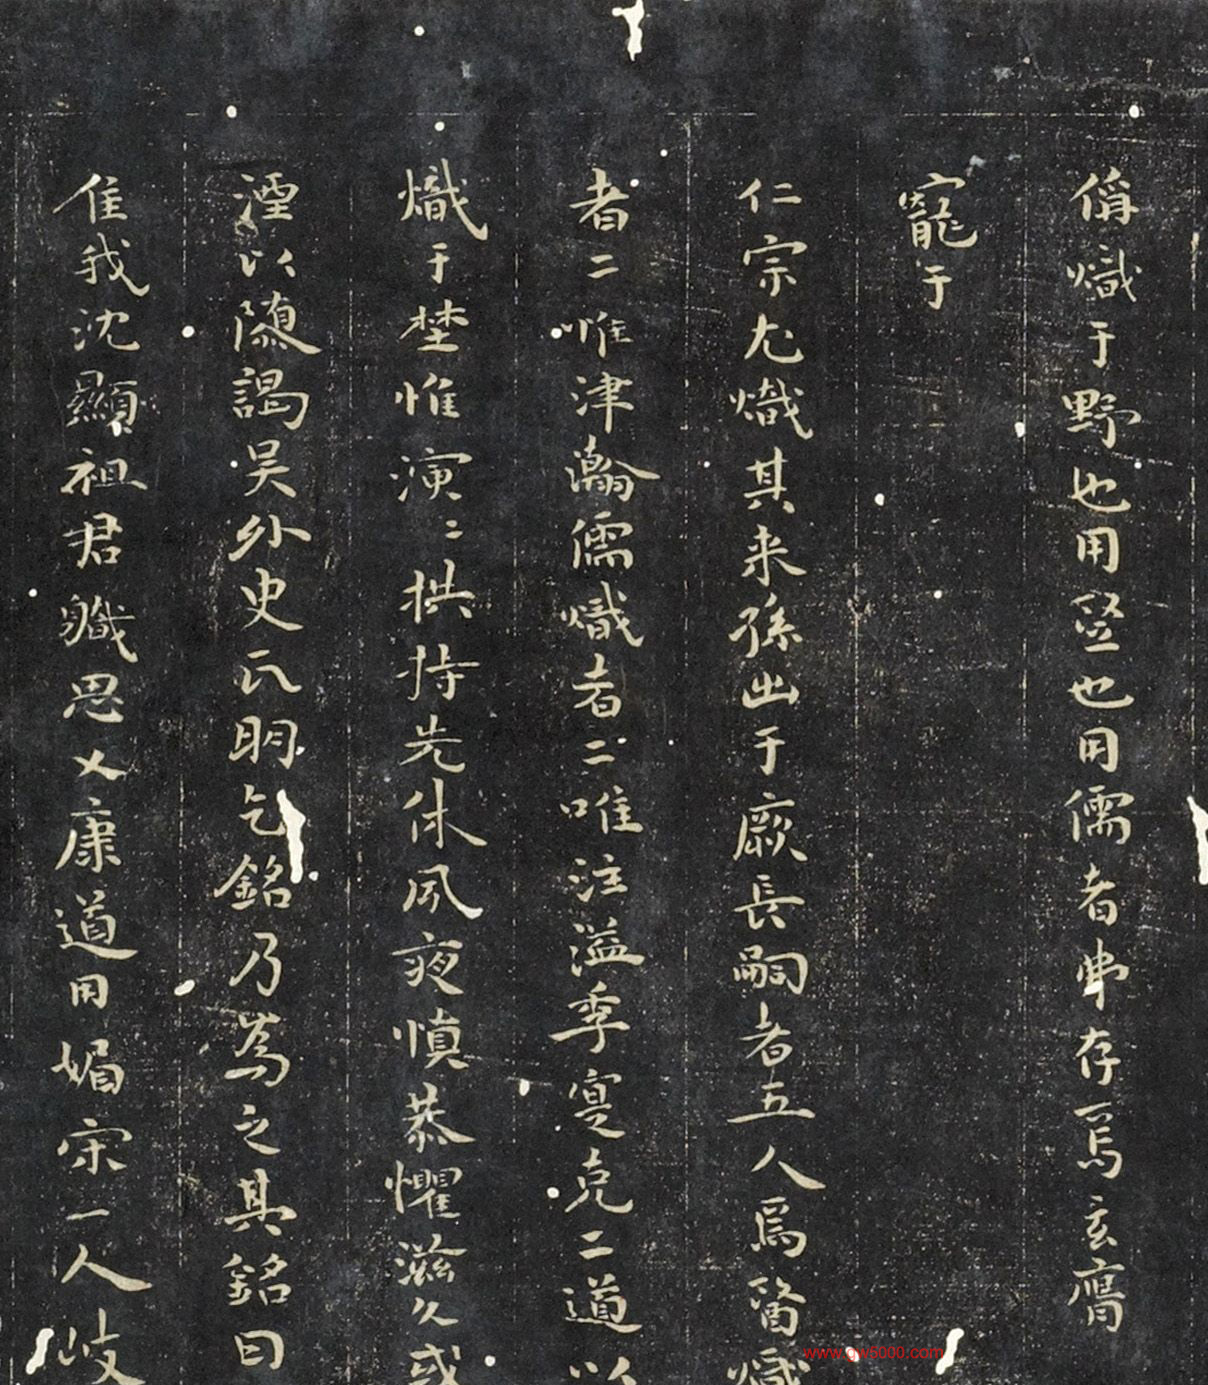 偁熾于野也用竖也用儒者弗存焉玄膺
寵于
仁宗尤熾其来孫出于厥長嗣者五人焉醫熾
者二唯津瀚儒熾者二唯注溢季寔克二道以
熾于埜惟演二拱持先休夙夜慎恭懼滋久或
湮以随謁吴外史氏明乞銘乃為之其銘曰
隹我沈顯祖君軄思乂康道用媚宋一人岐
www.gw5000.com